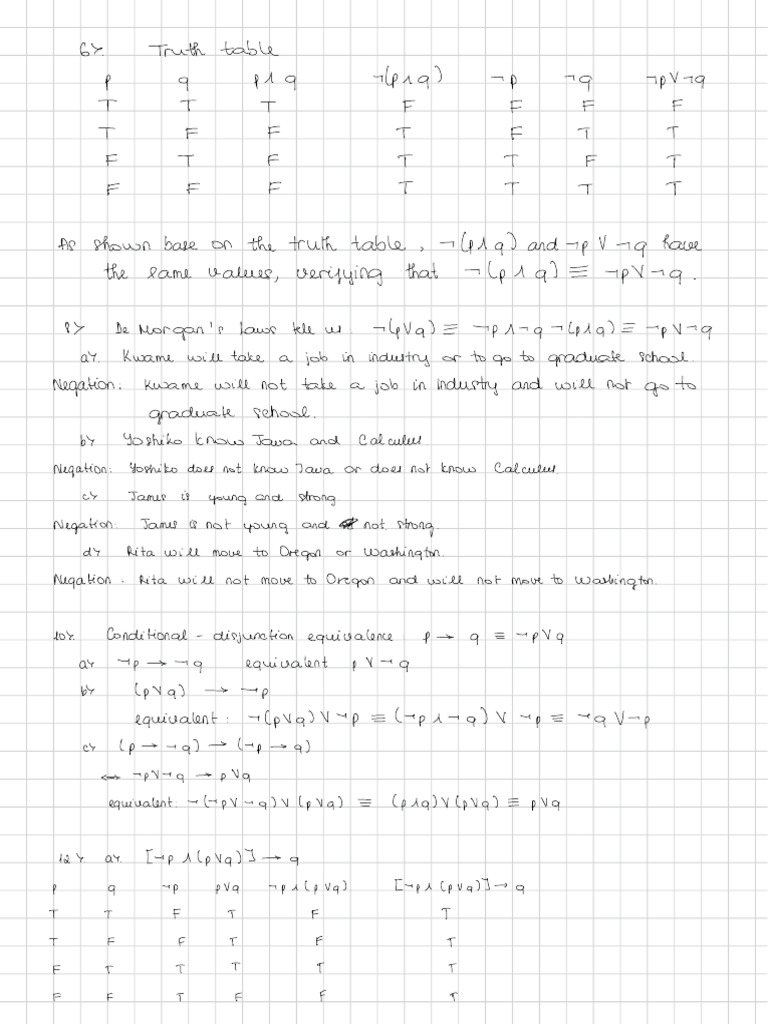 6/. Truth table
p q p∧q ¬(p∧q) ¬p ¬q ¬p∨¬q
T T T F F F F
T F F T F T T
F T F T T F T
F F F T T T T
As shown base on the truth table, ¬(p∧q) and ¬p∨¬q have
the same values, verifying that ¬(p∧q) ≡ ¬p∨¬q.
8/. De Morgan's Laws : ¬(p∨q) ≡ ¬p∧¬q ¬(p∧q) ≡ ¬p∨¬q
a/. Kwame will take a job in industry or to go to graduate school.
Negation: Kwame will not take a job in industry and will not go to
graduate school.
b/. Yoshiko know Java and Calculus
Negation: Yoshiko does not know Java or does not know Calculus
c/. James is young and strong.
Negation: James is not young and not strong.
d/. Rita will move to Oregon or Washington.
Negation: Rita will not move to Oregon and will not move to Washington.
10/. Conditional - disjunction equivalence: p → q ≡ ¬p∨q
a/. ¬p → ¬q equivalent p∨¬q
b/. (p∨q) → ¬p
equivalent: ¬(p∨q)∨¬p ≡ (¬p∧¬q)∨¬p ≡ ¬q∨¬p
c/. (p→¬q) → (¬p→q)
↔ ¬p∨¬q → p∨q
equivalent: ¬(¬p∨¬q)∨(p∨q) ≡ (p∧q)∨(p∨q) ≡ p∨q
12/. a/. [¬p∧(p∨q)] → q
p q ¬p p∨q ¬p∧(p∨q) [¬p∧(p∨q)]→q
T T F T F T
T F F T F T
F T T T T T
F F T F F T